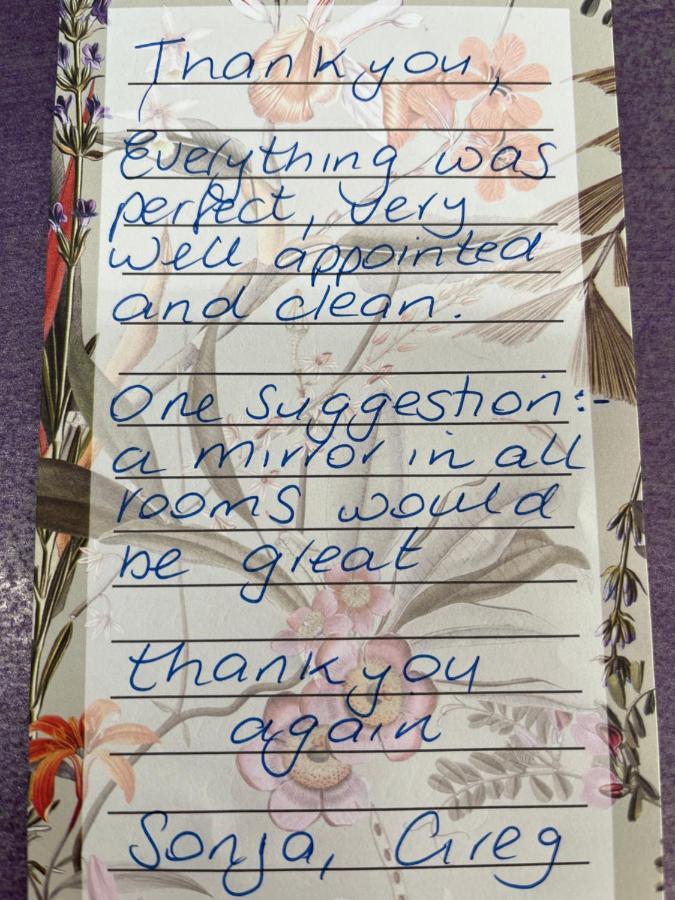 Thank you,
Everything was
perfect, very
well appointed
and clean.
One suggestion:-
a mirror in all
rooms would
be great
thank you
again
Sonja, Greg